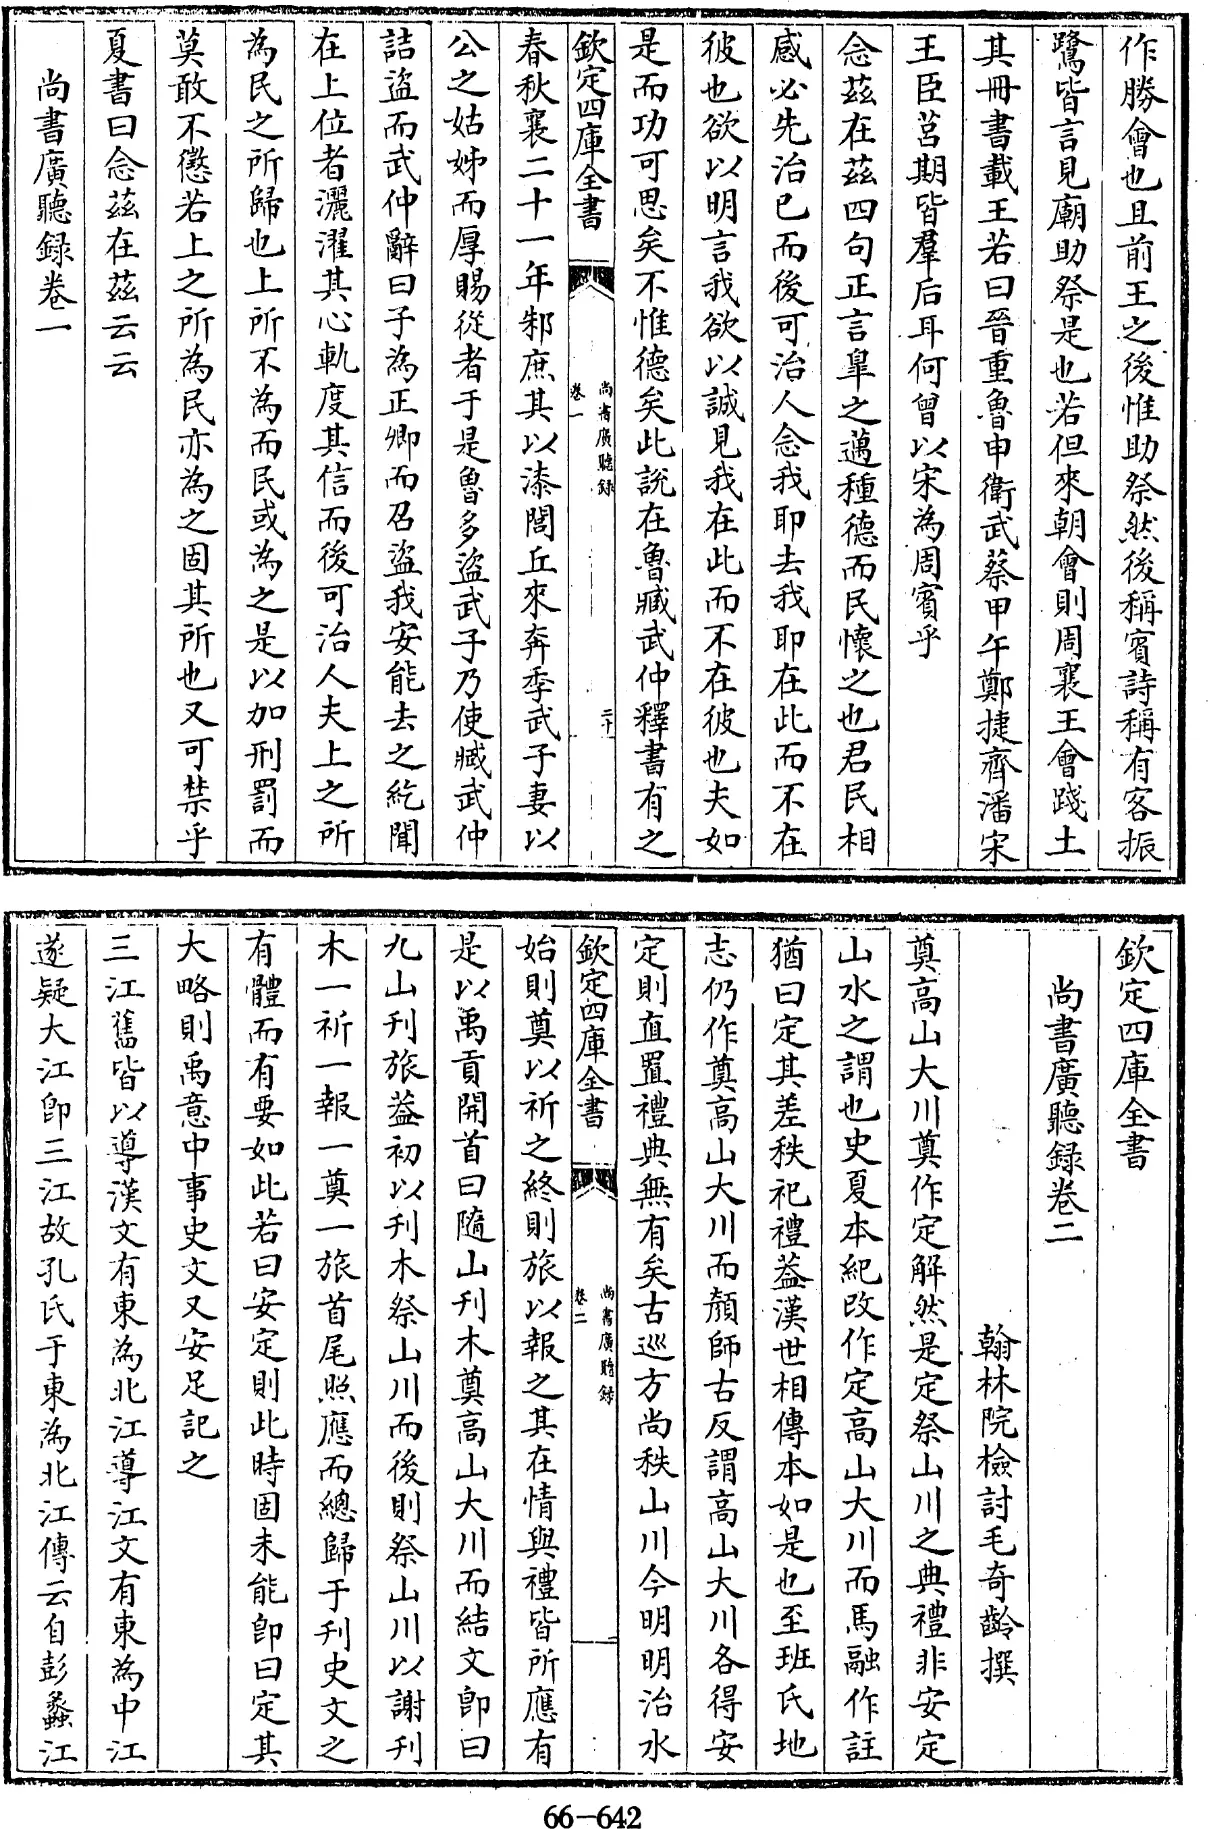 作勝會也且前王之後惟助祭然後稱賓詩稱有客振
鷺皆言見廟助祭是也若但來朝會則周襄王會踐土
其冊書載王若曰晉重魯申衛武蔡甲午鄭捷齊潘宋
王臣莒期皆羣后耳何曾以宋為周賓乎
念茲在茲四句正言臯之邁種德而民懷之也君民相
感必先治已而後可治人念我耶去我耶在此而不在
彼也欲以明言我欲以誠見我在此而不在彼也夫如
是而功可思矣不惟德矣此說在魯臧武仲釋書有之
欽定四庫全書
尚書廣聽録
卷一
三十
春秋襄二十一年邾庶其以漆閭丘來奔季武子妻以
公之姑姊而厚賜從者于是魯多盜武子乃使臧武仲
詰盜而武仲辭曰子為正卿而召盜我安能去之紇聞
在上位者灑濯其心軌度其信而後可治人夫上之所
為民之所歸也上所不為而民或為之是以加刑罰而
莫敢不懲若上之所為民亦為之固其所也又可禁乎
夏書曰念茲在茲云云
尚書廣聽録卷一
欽定四庫全書
尚書廣聽録卷二
翰林院檢討毛奇齡撰
奠高山大川奠作定解然是定祭山川之典禮非安定
山水之謂也史夏本紀改作定高山大川而馬融作註
猶曰定其差秩祀禮葢漢世相傳本如是也至班氏地
志仍作奠高山大川而顏師古反謂高山大川各得安
定則直置禮典無有矣古巡方尚秩山川今明明治水
欽定四庫全書
尚書廣聽録
卷二
始則奠以祈之終則旅以報之其在情與禮皆所應有
是以禹貢開首曰隨山刋木奠高山大川而結文卽曰
九山刋旅葢初以刋木祭山川而後則祭山川以謝刋
木一祈一報一奠一旅首尾照應而總歸于刋史文之
有體而有要如此若曰安定則此時固未能卽曰定其
大略則禹意中事史文又安足記之
三江舊皆以導漢文有東為北江導江文有東為中江
遂疑大江卽三江故孔氏于東為北江傳云自彭蠡江
66-642